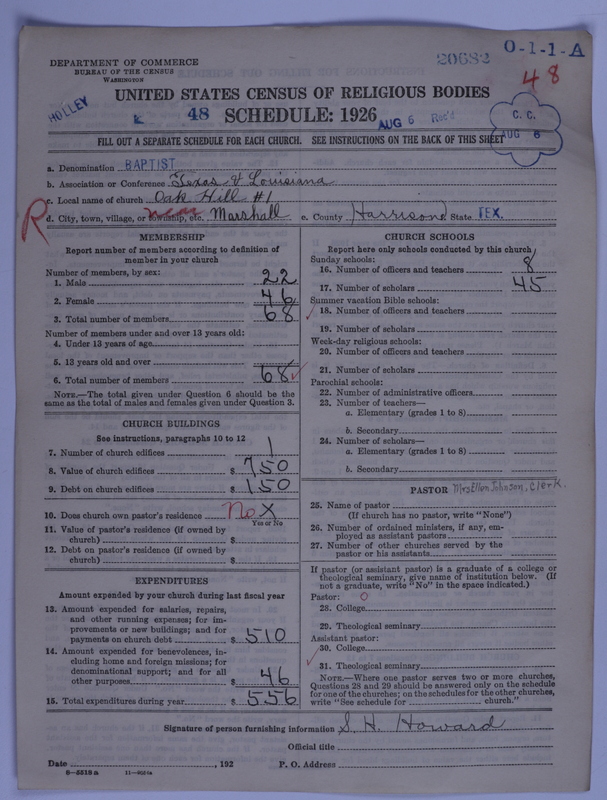 DEPARTMENT OF COMMERCE
BUREAU OF THE CENSUS
WASHINGTON
20682
O-1-1-A
48
UNITED STATES CENSUS OF RELIGIOUS BODIES
HOLLEY
48 SCHEDULE: 1926
AUG 6 Rec'd
C. C.
AUG 6
FILL OUT A SEPARATE SCHEDULE FOR EACH CHURCH. SEE INSTRUCTIONS ON THE BACK OF THIS SHEET
a. Denomination BAPTIST
b. Association or Conference Texas & Louisiana
c. Local name of church Oak Hill #1
R
d. City, town, village, or township, etc. near Marshall e. County Harrison State TEX.
MEMBERSHIP
Report number of members according to definition of
member in your church
Number of members, by sex:
1. Male 22
2. Female 46
3. Total number of members 68
Number of members under and over 13 years old:
4. Under 13 years of age
5. 13 years old and over
6. Total number of members 68
NOTE.—The total given under Question 6 should be the
same as the total of males and females given under Question 3.
CHURCH BUILDINGS
See instructions, paragraphs 10 to 12
7. Number of church edifices 1
8. Value of church edifices $ 750
9. Debt on church edifices $ 150
10. Does church own pastor's residence No X
Yes or No
11. Value of pastor's residence (if owned by
church) $
12. Debt on pastor's residence (if owned by
church) $
EXPENDITURES
Amount expended by your church during last fiscal year
13. Amount expended for salaries, repairs,
and other running expenses; for im-
provements or new buildings; and for
payments on church debt $ 510
14. Amount expended for benevolences, in-
cluding home and foreign missions; for
denominational support; and for all
other purposes $ 46
15. Total expenditures during year $ 556
CHURCH SCHOOLS
Report here only schools conducted by this church
Sunday schools:
16. Number of officers and teachers 8
17. Number of scholars 45
Summer vacation Bible schools:
18. Number of officers and teachers
19. Number of scholars
Week-day religious schools:
20. Number of officers and teachers
21. Number of scholars
Parochial schools:
22. Number of administrative officers
23. Number of teachers—
a. Elementary (grades 1 to 8)
b. Secondary
24. Number of scholars—
a. Elementary (grades 1 to 8)
b. Secondary
PASTOR Mrs Ellen Johnson, Clerk.
25. Name of pastor
(If church has no pastor, write "None")
26. Number of ordained ministers, if any, em-
ployed as assistant pastors
27. Number of other churches served by the
pastor or his assistants
If pastor (or assistant pastor) is a graduate of a college or
theological seminary, give name of institution below. (If
not a graduate, write "No" in the space indicated.)
Pastor: O
28. College
29. Theological seminary
Assistant pastor:
30. College
31. Theological seminary
NOTE.—Where one pastor serves two or more churches,
Questions 28 and 29 should be answered only on the schedule
for one of the churches; on the schedules for the other churches,
write "See schedule for church."
Signature of person furnishing information S. H. Howard
Official title
Date , 192 P. O. Address
8—5518 a 11—9051a